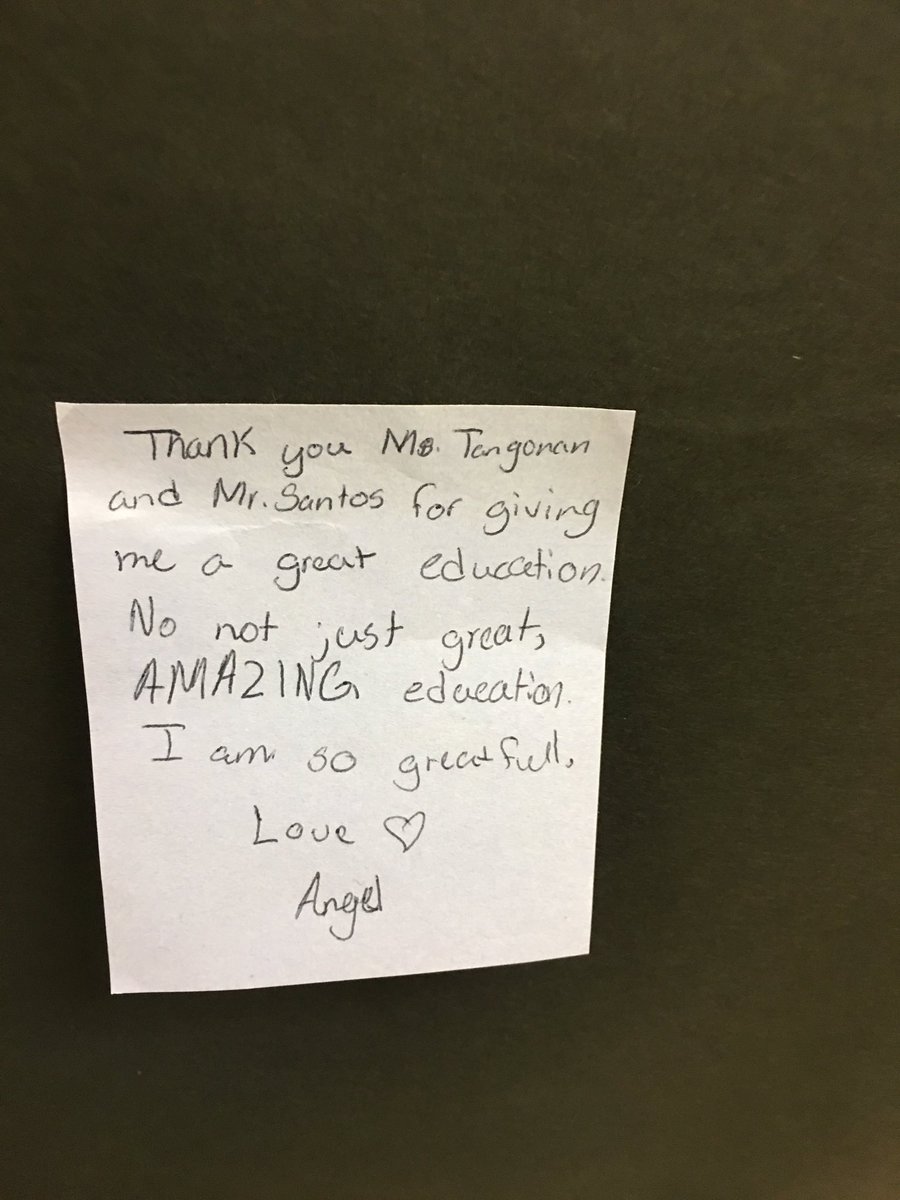 Thank you Ms. Tangonan
and Mr. Santos for giving
me a great education.
No not just great,
AMAZING education.
I am so greatfull.
Love ♡
Angel